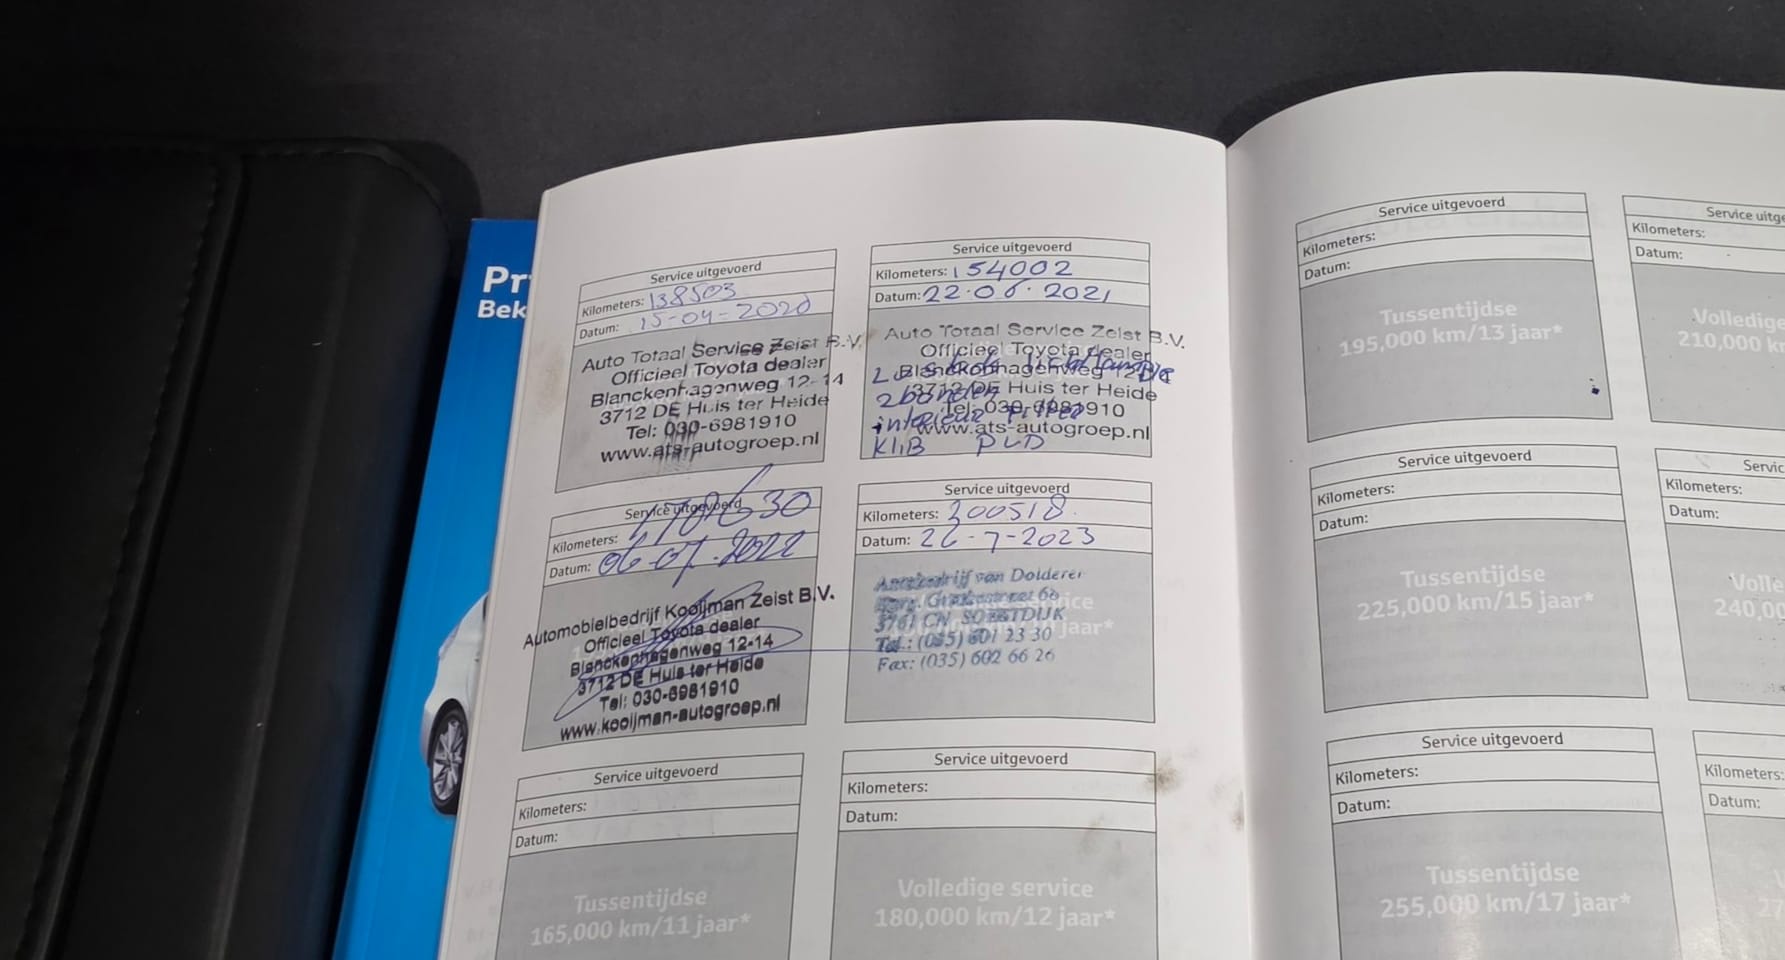 Pr
Bek
Service uitgevoerd
Kilometers: 138503
Datum: 15-04-2020
Auto Totaal Service Zeist B.V.
Officieel Toyota dealer
Blanckenhagenweg 12-14
3712 DE Huis ter Heide
Tel: 030-6981910
www.ats-autogroep.nl
Service uitgevoerd
Kilometers: 154002
Datum: 22.06.2021
Auto Totaal Service Zeist B.V.
Officieel Toyota dealer
Blanckenhagenweg 12-14
3712 DE Huis ter Heide
2 banden
Tel: 030-6981910
interieur filter
www.ats-autogroep.nl
KLIB PVD
Service uitgevoerd
Kilometers:
Datum: 06-07-2022
Automobielbedrijf Kooijman Zeist B.V.
Officieel Toyota dealer
Blanckenhagenweg 12-14
3712 DE Huis ter Heide
Tel: 030-6981910
www.kooijman-autogroep.nl
Service uitgevoerd
Kilometers: 200518
Datum: 26-7-2023
Autobedrijf van Dolderer
3761 CN SOESTDIJK
Tel.: (035) 601 23 30
Fax: (035) 602 66 26
service
jaar*
Service uitgevoerd
Kilometers:
Datum:
Tussentijdse
165,000 km/11 jaar*
Service uitgevoerd
Kilometers:
Datum:
Volledige service
180,000 km/12 jaar*
Service uitgevoerd
Kilometers:
Datum:
Tussentijdse
195,000 km/13 jaar*
Service uitge
Kilometers:
Datum:
Volledige
210,000 k
Service uitgevoerd
Kilometers:
Datum:
Tussentijdse
225,000 km/15 jaar*
Servic
Kilometers:
Datum:
Volle
240,00
Service uitgevoerd
Kilometers:
Datum:
Tussentijdse
255,000 km/17 jaar*
Kilometers:
Datum:
27